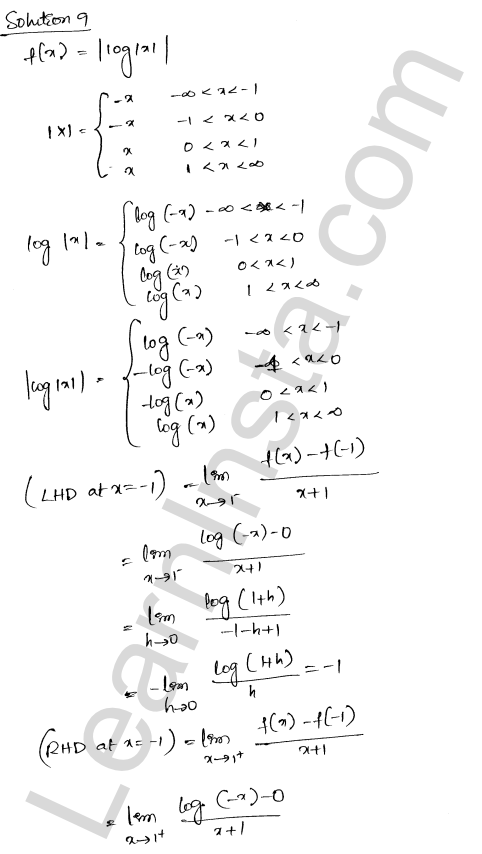 Solution 9
f(x) = |log|x||
|x| = { -x  -∞ < x < -1
-x  -1 < x < 0
x  0 < x < 1
x  1 < x < ∞
log |x| = { log (-x)  -∞ < x < -1
log (-x)  -1 < x < 0
log (x)  0 < x < 1
log (x)  1 < x < ∞
|log|x|| = { log (-x)  -∞ < x < -1
-log (-x)  -1 < x < 0
-log (x)  0 < x < 1
log (x)  1 < x < ∞
(LHD at x = -1) = lim x→1⁻ (f(x) - f(-1))/(x+1)
= lim x→1⁻ (log (-x) - 0)/(x+1)
= lim h→0 (log (1+h))/(-1-h+1)
= -lim h→0 (log (1+h))/h = -1
(RHD at x = -1) = lim x→1⁺ (f(x) - f(-1))/(x+1)
= lim x→1⁺ (log (-x) - 0)/(x+1)
LearnInsta.com